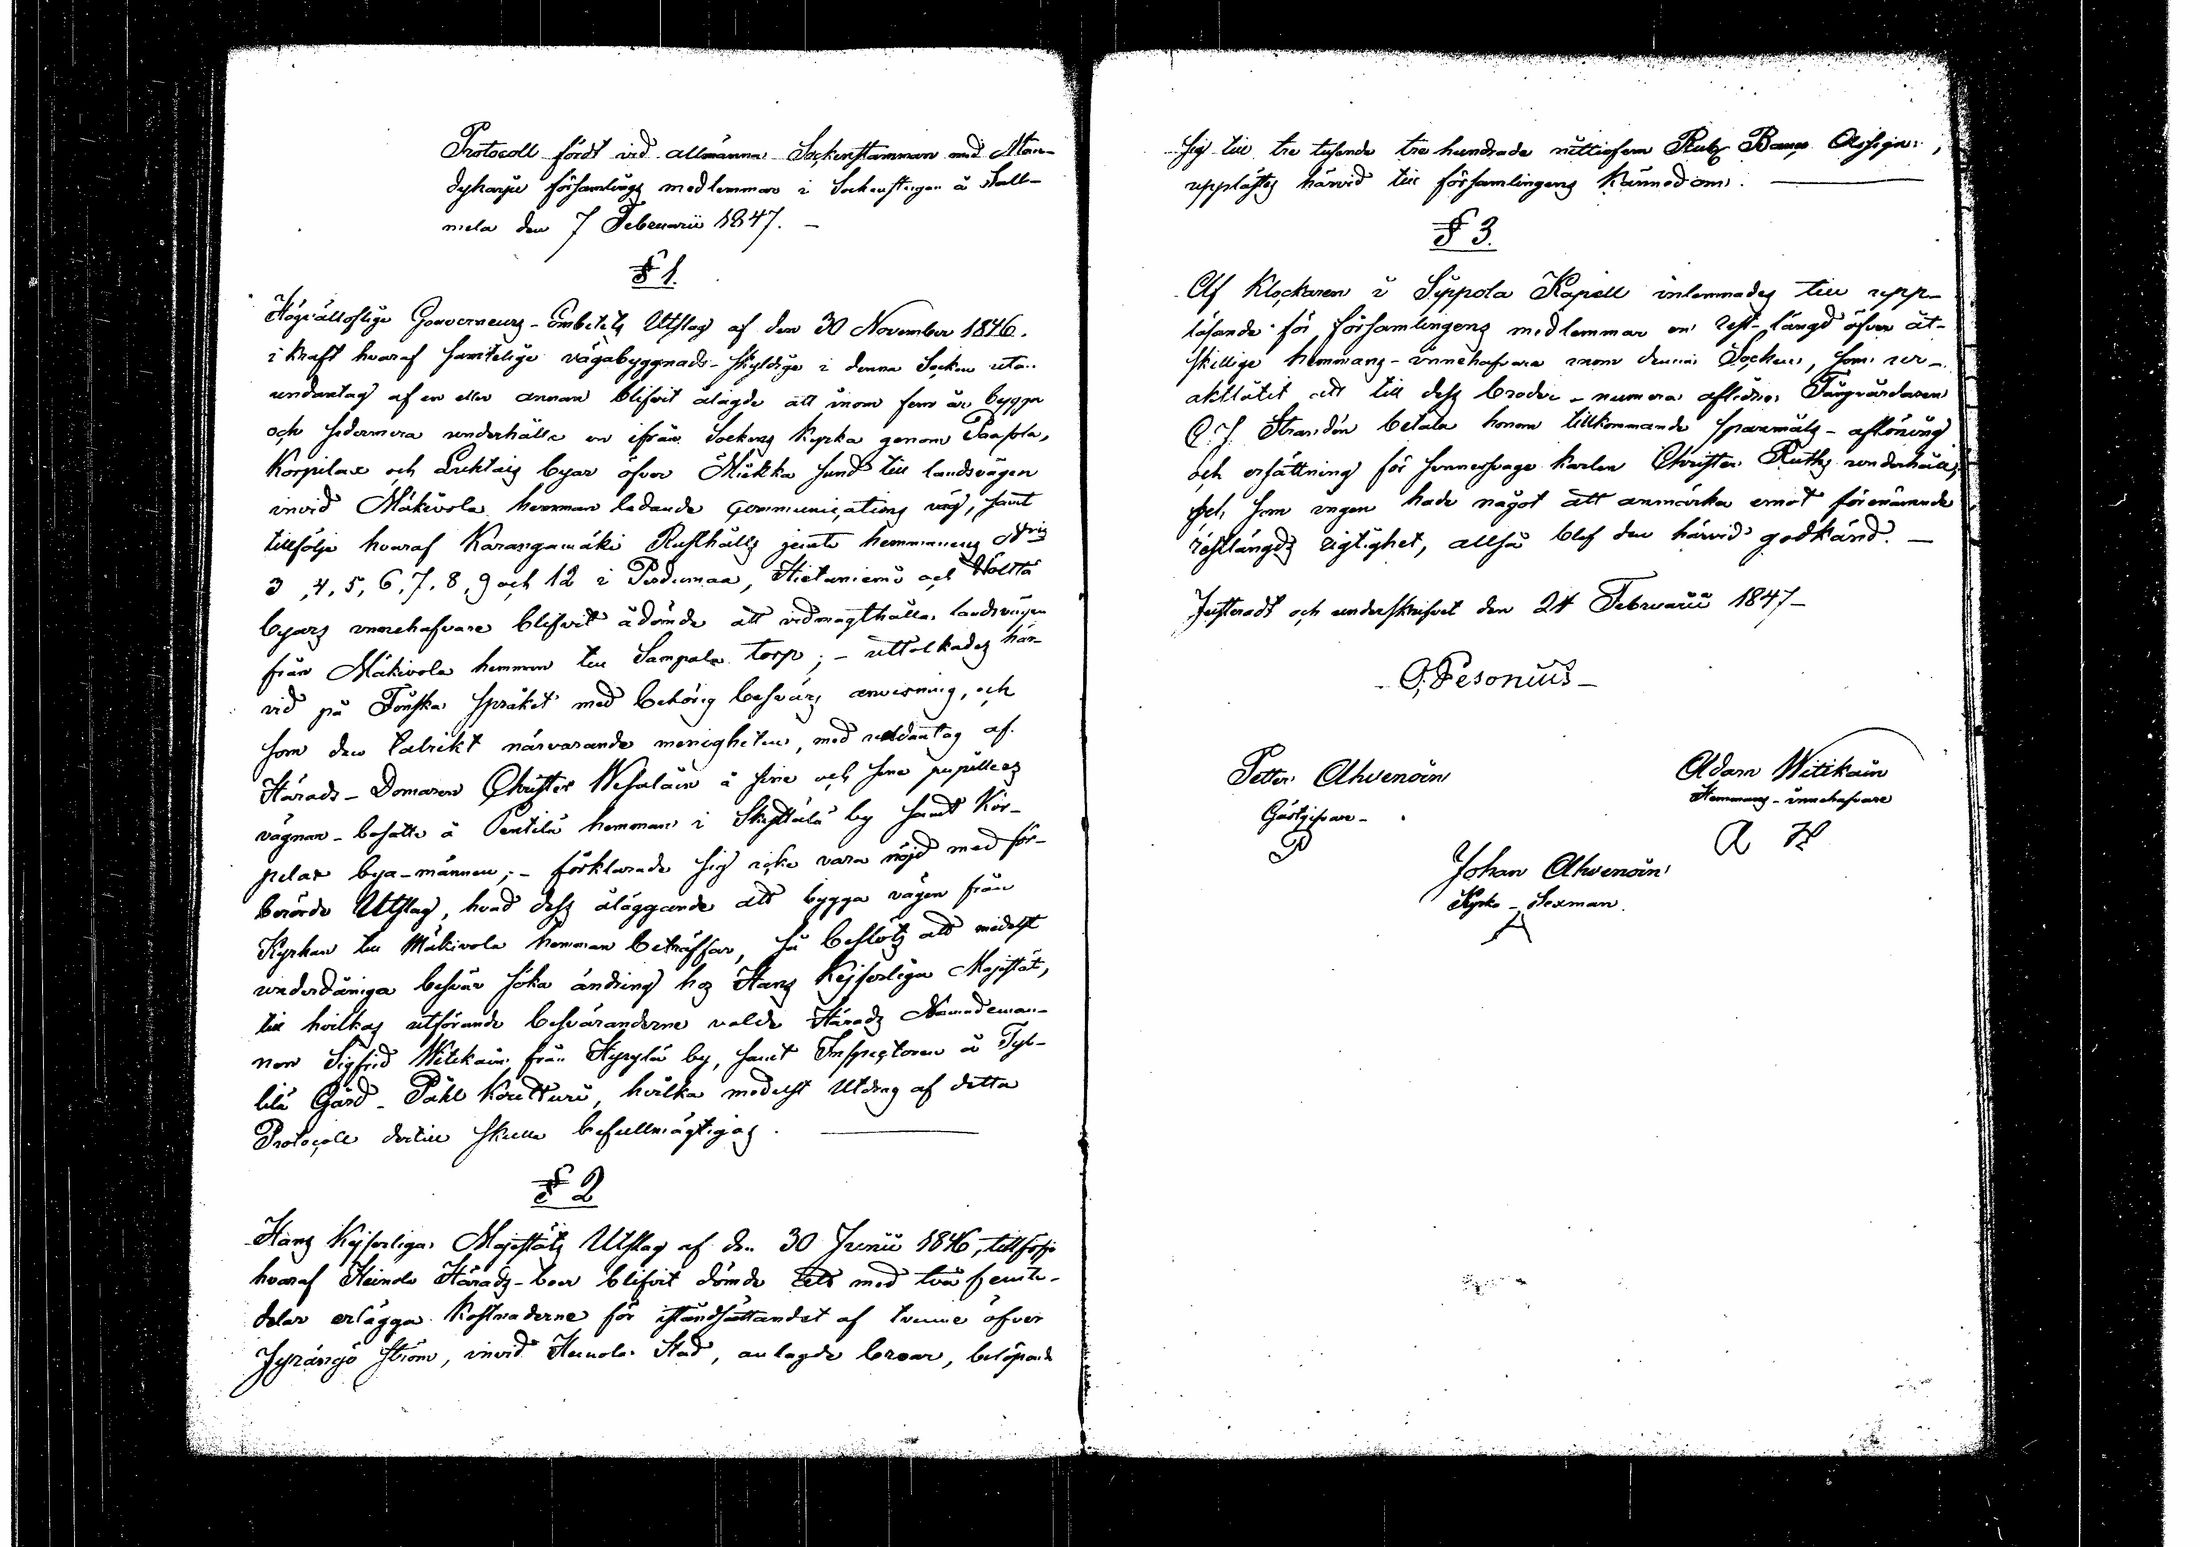 Protocoll fördt vid allmänna Sockenstämman med Män-
dyharju församlings medlemmar i Sockenstugan å Sall-
mela den 7 Februarii 1847. –
§ 1.
Högvälloflige Gouverneurs-Embetets Utslag af den 30 November 1846.
i kraft hvaraf samtelige vägabyggnads-skyldige i denna Socken utan
undantag af en eller annan blifvit ålagde att inom fem år bygga
och sedermera underhålla en ifrån Sockens Kyrka genom Paasola,
Korpilax och Luhtais byar öfver Miekka sund till landsvägen
invid Mäkivola hemman ledande communications väg, samt
tillfölje hvaraf Karangamäki Rusthålls jemte hemmanens N:ris
3, 4, 5, 6, 7, 8, 9 och 12 i Pertumaa, Hietaniemi och
byars innehafvare blifvit ådömde att vidmagthålla landsvägen
från Mäkivola hemman till Sampala torp; – uttolkades här-
vid på Finska språket med behörig besvärs anvisning, och
som den talrikt närvarande menigheten, med undantag af
Härads-Domaren Christer Wesaläin å sine och sine pupillers
vägnar - besatte å Penttilä hemman i by samt Kor-
pilax bya-männen; – förklarade sig icke vara nöjd med för-
berörde Utslag, hvad dess åläggande att bygga vägen från
Kyrkan till Mäkivola hemman beträffar, så beslöts att medelst
underdåniga besvär söka ändring hos Hans Kejserliga Majestät,
till hvilkas utförande besväranderne valde Härads Nämndeman-
nen Sigfrid Witikain från Hyrylä by, samt Inspectoren å Tyk-
lilä Gård - Påhl Koutturi, hvilka medelst Utdrag af detta
Protocoll dertill skulle befullmägtigas.
§ 2
Hans Kejserliga Majestäts Utslag af den 30 Junii 1846, tillfölje
hvaraf Heinola Härads-boer blifvit dömde att med två femte-
delar erlägga Kostnaderne för iståndsättandet af tvenne öfver
Jyrängö ström, invid Heinola Stad, anlagde broar, belöpande
sig till tre tusende tre hundrade nittiofem Rub. Banco Assign:,
upplästes härvid till församlingens kännedom.
§ 3.
Af Klockaren i Syppola Kapell inlemnades till upp-
läsande för församlingens medlemmar en rest-längd öfver åt-
skillige hemmans-innehafvare inom denna Socken, som un-
aktlåtit att till dess broder - numera aflidne Fångvårdaren
C. J. Strandén betala honom tillkommande spannmåls-aflöning
och ersättning för sinnessvage karlen Christer Ruths underhåll;
och som ingen hade något att anmärka emot förenämnde
restlängds rigtighet, alltså blef den härvid godkänd. –
Justeradt och underskrifvet den 24 Februarii 1847 –
– C. Pesonius –
Petter Ahvenain
Gästgifvare –
P
Adam Witikain
Hemmans-innehafvare
A W
Johan Ahvenain
Kyrko-Sexman.